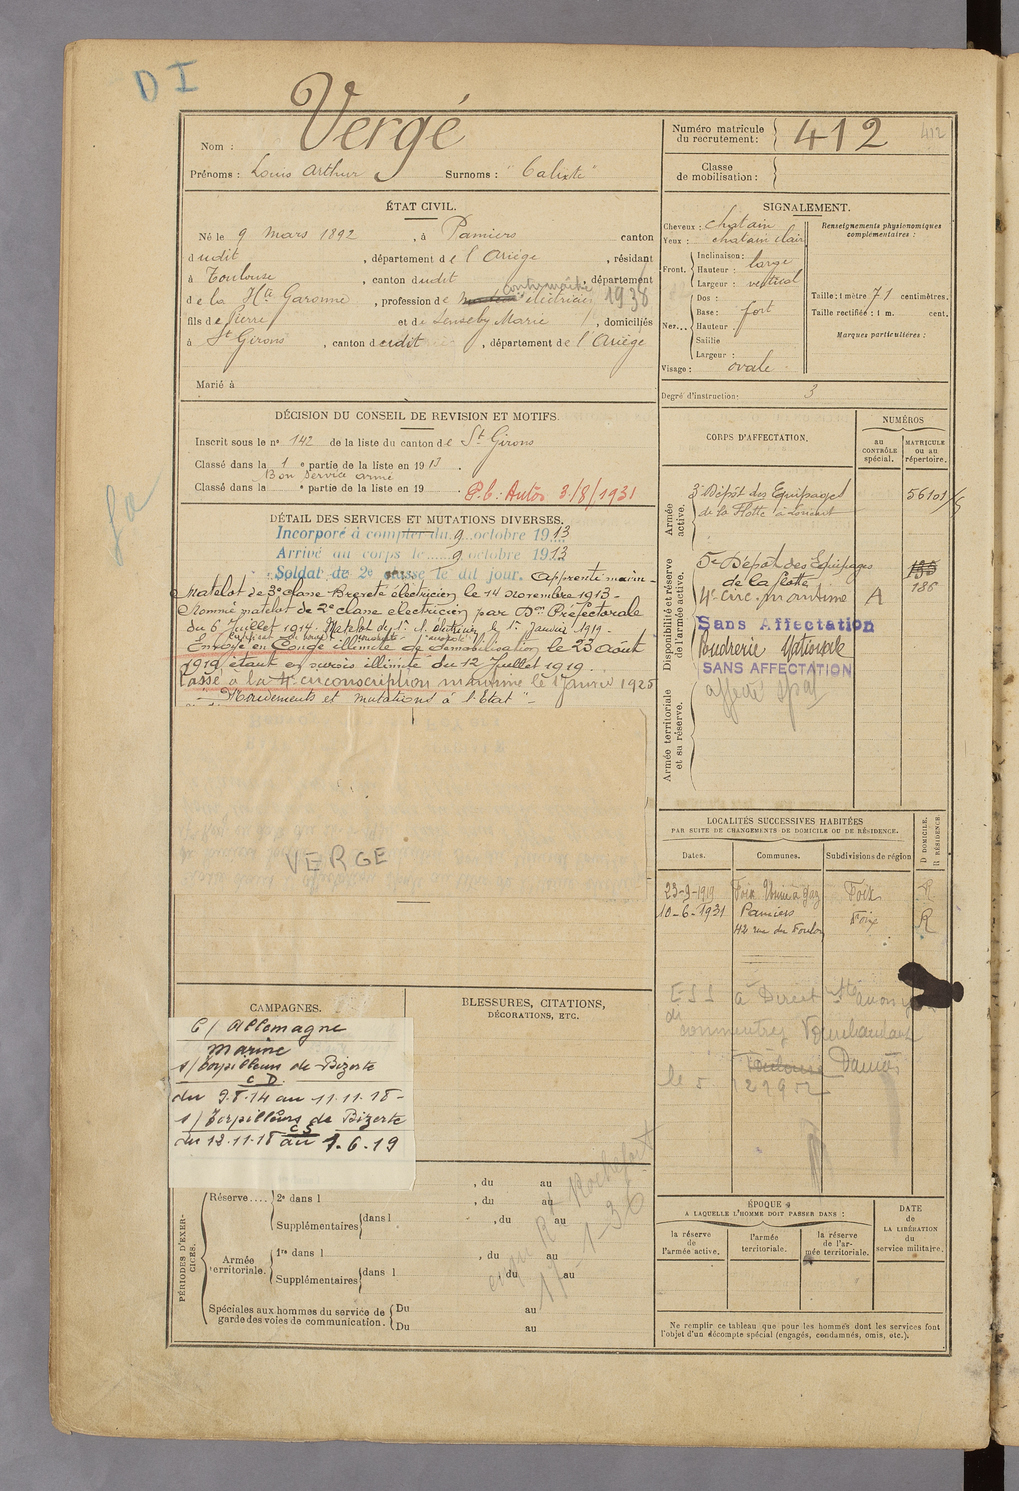 D I
Nom : Vergé
Prénoms : Louis Arthur Surnoms : "Calixte"
ÉTAT CIVIL.
Né le 9 mars 1892, à Pamiers canton
dudit, département de l'Ariège, résidant
à Toulouse, canton dudit, département
de la Hte Garonne, profession de contremaître électricien 1938
fils de Pierre et de Senseby Marie, domiciliés
à St Girons, canton dudit, département de l'Ariège
Marié à
DÉCISION DU CONSEIL DE REVISION ET MOTIFS.
Inscrit sous le n° 142 de la liste du canton de St Girons
Classé dans la 1e partie de la liste en 1913.
Bon service armé
Classé dans la e partie de la liste en 19 . P.C. Autos 3/8/1931
DÉTAIL DES SERVICES ET MUTATIONS DIVERSES.
Incorporé à compter du 9 octobre 1913
Arrivé au corps le 9 octobre 1913
Soldat de 2e classe le dit jour. Apprenti marin-
Matelot de 3e classe Breveté électricien le 14 novembre 1913-
Nommé matelot de 2e classe électricien par Don Préfectorale
du 6 Juillet 1914. Matelot de 1e cl. électricien le 1er Janvier 1919-
Envoyé en Congé illimité de démobilisation le 23 Août
1919, étant en sursis illimité du 12 Juillet 1919.
Passé à la 4e circonscription maritime le 1 Janvier 1925
"Mouvements et mutations à l'Etat"
VERGE
CAMPAGNES.
C/ Allemagne
Marine
s/ Torpilleurs de Bizerte
C D
du 9.8.14 au 11.11.18-
s/ Torpilleurs de Bizerte
C S
du 12.11.18 au 1.6.19
BLESSURES, CITATIONS,
DÉCORATIONS, ETC.
PÉRIODES D'EXERCICES.
, du au
Réserve.... 2e dans l , du au
Supplémentaires dans l , du au
Armée territoriale. 1re dans l , du au
Supplémentaires dans l du au
Spéciales aux hommes du service de garde des voies de communication. Du au
Du au
Rochefort
17-1-36
Numéro matricule du recrutement : 412 412
Classe de mobilisation :
SIGNALEMENT.
Cheveux : chatain
Yeux : chatain clair
Front. Inclinaison : large
Hauteur :
Largeur : vertical
Nez... Dos :
Base : fort
Hauteur
Saillie
Largeur :
Visage : ovale
Renseignements physionomiques complémentaires :
Taille : 1 mètre 71 centimètres.
Taille rectifiée : 1 m. cent.
Marques particulières :
Degré d'instruction : 3
CORPS D'AFFECTATION.
NUMÉROS
au CONTRÔLE spécial.
MATRICULE ou au répertoire.
Armée active.
3e Dépôt des Equipages 56101/5
de la Flotte à Lorient
Disponibilité et réserve de l'armée active.
5e Dépôt des Equipages
de la flotte 186
4e Circ. maritime A
Sans Affectation
Poudrerie Nationale
SANS AFFECTATION
affecté spal
Armée territoriale et sa réserve.
LOCALITÉS SUCCESSIVES HABITÉES
PAR SUITE DE CHANGEMENTS DE DOMICILE OU DE RÉSIDENCE.
Dates. Communes. Subdivisions de région D DOMICILE. R RÉSIDENCE.
23-9-1919 Foix Usine à Gaz Foix R
10-6-1931 Pamiers Foix R
42 rue du Foulon
Commentry
ÉPOQUE
A LAQUELLE L'HOMME DOIT PASSER DANS :
la réserve de l'armée active.
l'armée territoriale.
la réserve de l'armée territoriale.
DATE de LA LIBÉRATION du service militaire.
Ne remplir ce tableau que pour les hommes dont les services font
l'objet d'un décompte spécial (engagés, condamnés, omis, etc.).